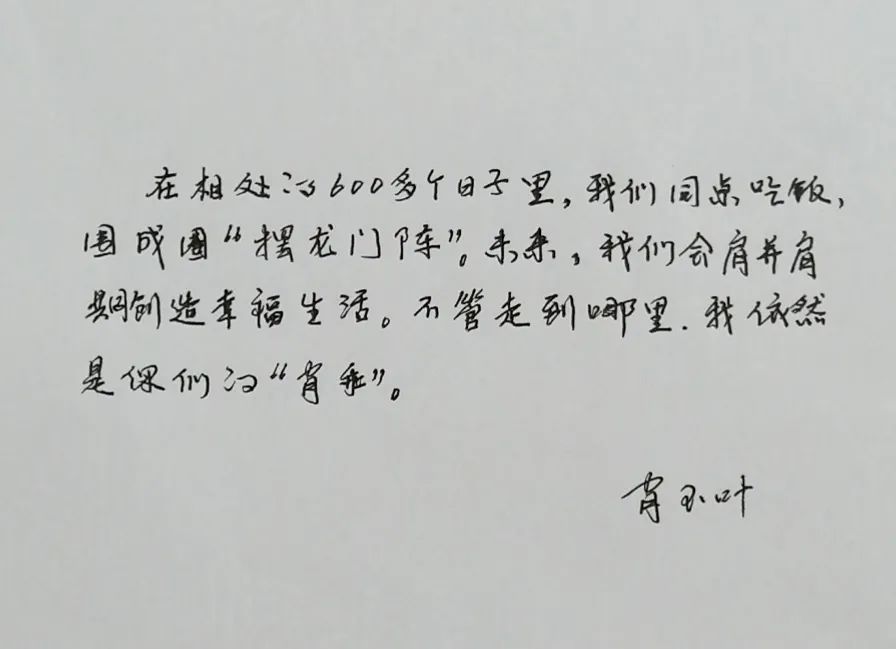 在相处的600多个日子里,我们同桌吃饭,
围成圈“摆龙门阵”。未来,我们会肩并肩
共同创造幸福生活。不管走到哪里.我依然
是你们的“肖乖”。
肖玉叶